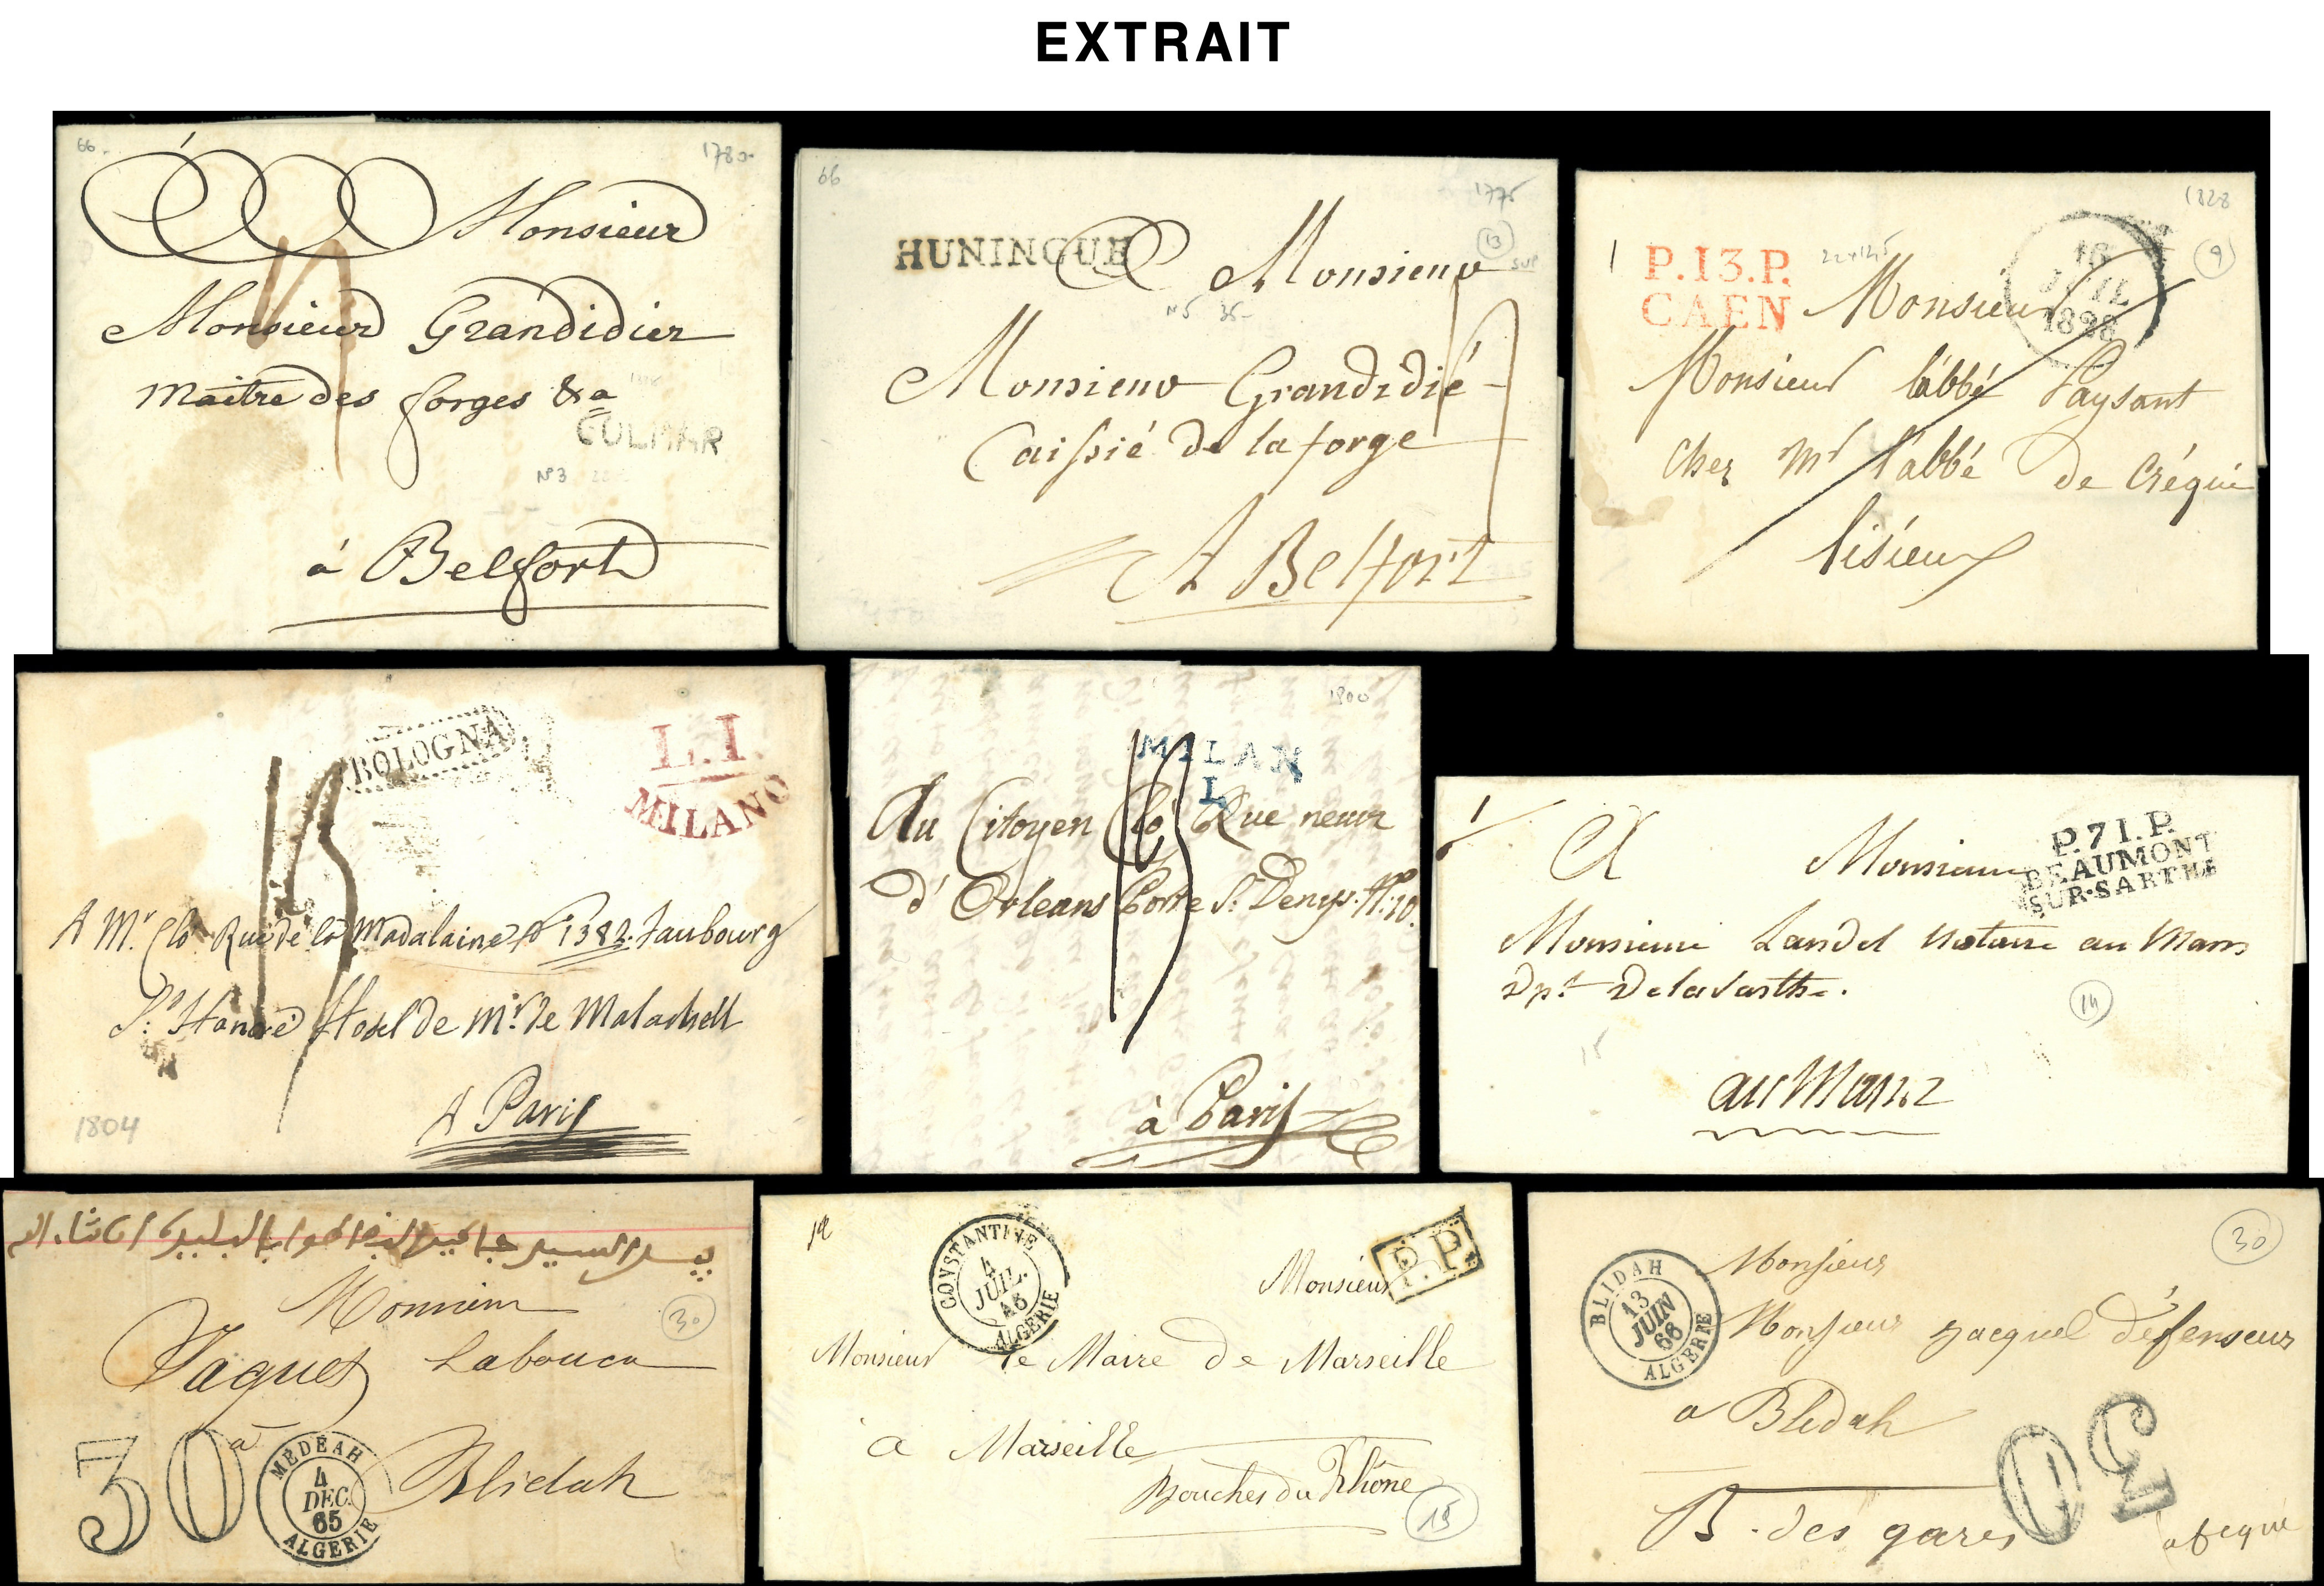 EXTRAIT
66.
1780
Monsieur
Monsieur Grandidier
Maitre des forges &a
COLMAR
N°3
à Belfort
66
1775
HUNINGUE
13
A Monsieur
SUP
N5 35-
Monsieur Grandidié
Caissié de la forge
A Belfort
1828
1
P.13.P.
CAEN
22x125
16
JUIL
1828
9
Monsieur
Monsieur l'abbé Paysant
Chez Mr l'abbé de Créqui
lisieux
BOLOGNA
L.I.
MILANO
A Mr. Clo Rue de la Madalaine No 1382. faubourg
St. Honoré Hotel de Mr. de
A Paris
1804
1800
MILAN
L
Au Citoyen Clo Rue neuve
d'Orleans Porte St. Denys. No. 10.
à Paris
1
A Monsieur
P.71.P.
BEAUMONT
SUR-SARTHE
Monsieur Landel Notaire au Mans
Dpt. De la Sarthe.
14
15
au Mans
Monsieur
30
Jaques Labouca
30
à
MÉDÉAH
4
DEC.
65
ALGERIE
Blidah
CONSTANTINE
4
JUIL.
45
ALGERIE
P.P.
Monsieur
Monsieur le Maire de Marseille
a Marseille
Bouches du Rhône
15
30
BLIDAH
13
JUIN
66
ALGERIE
Monsieur
Monsieur Jacquel défenseur
a Blidah
30
B. des gares